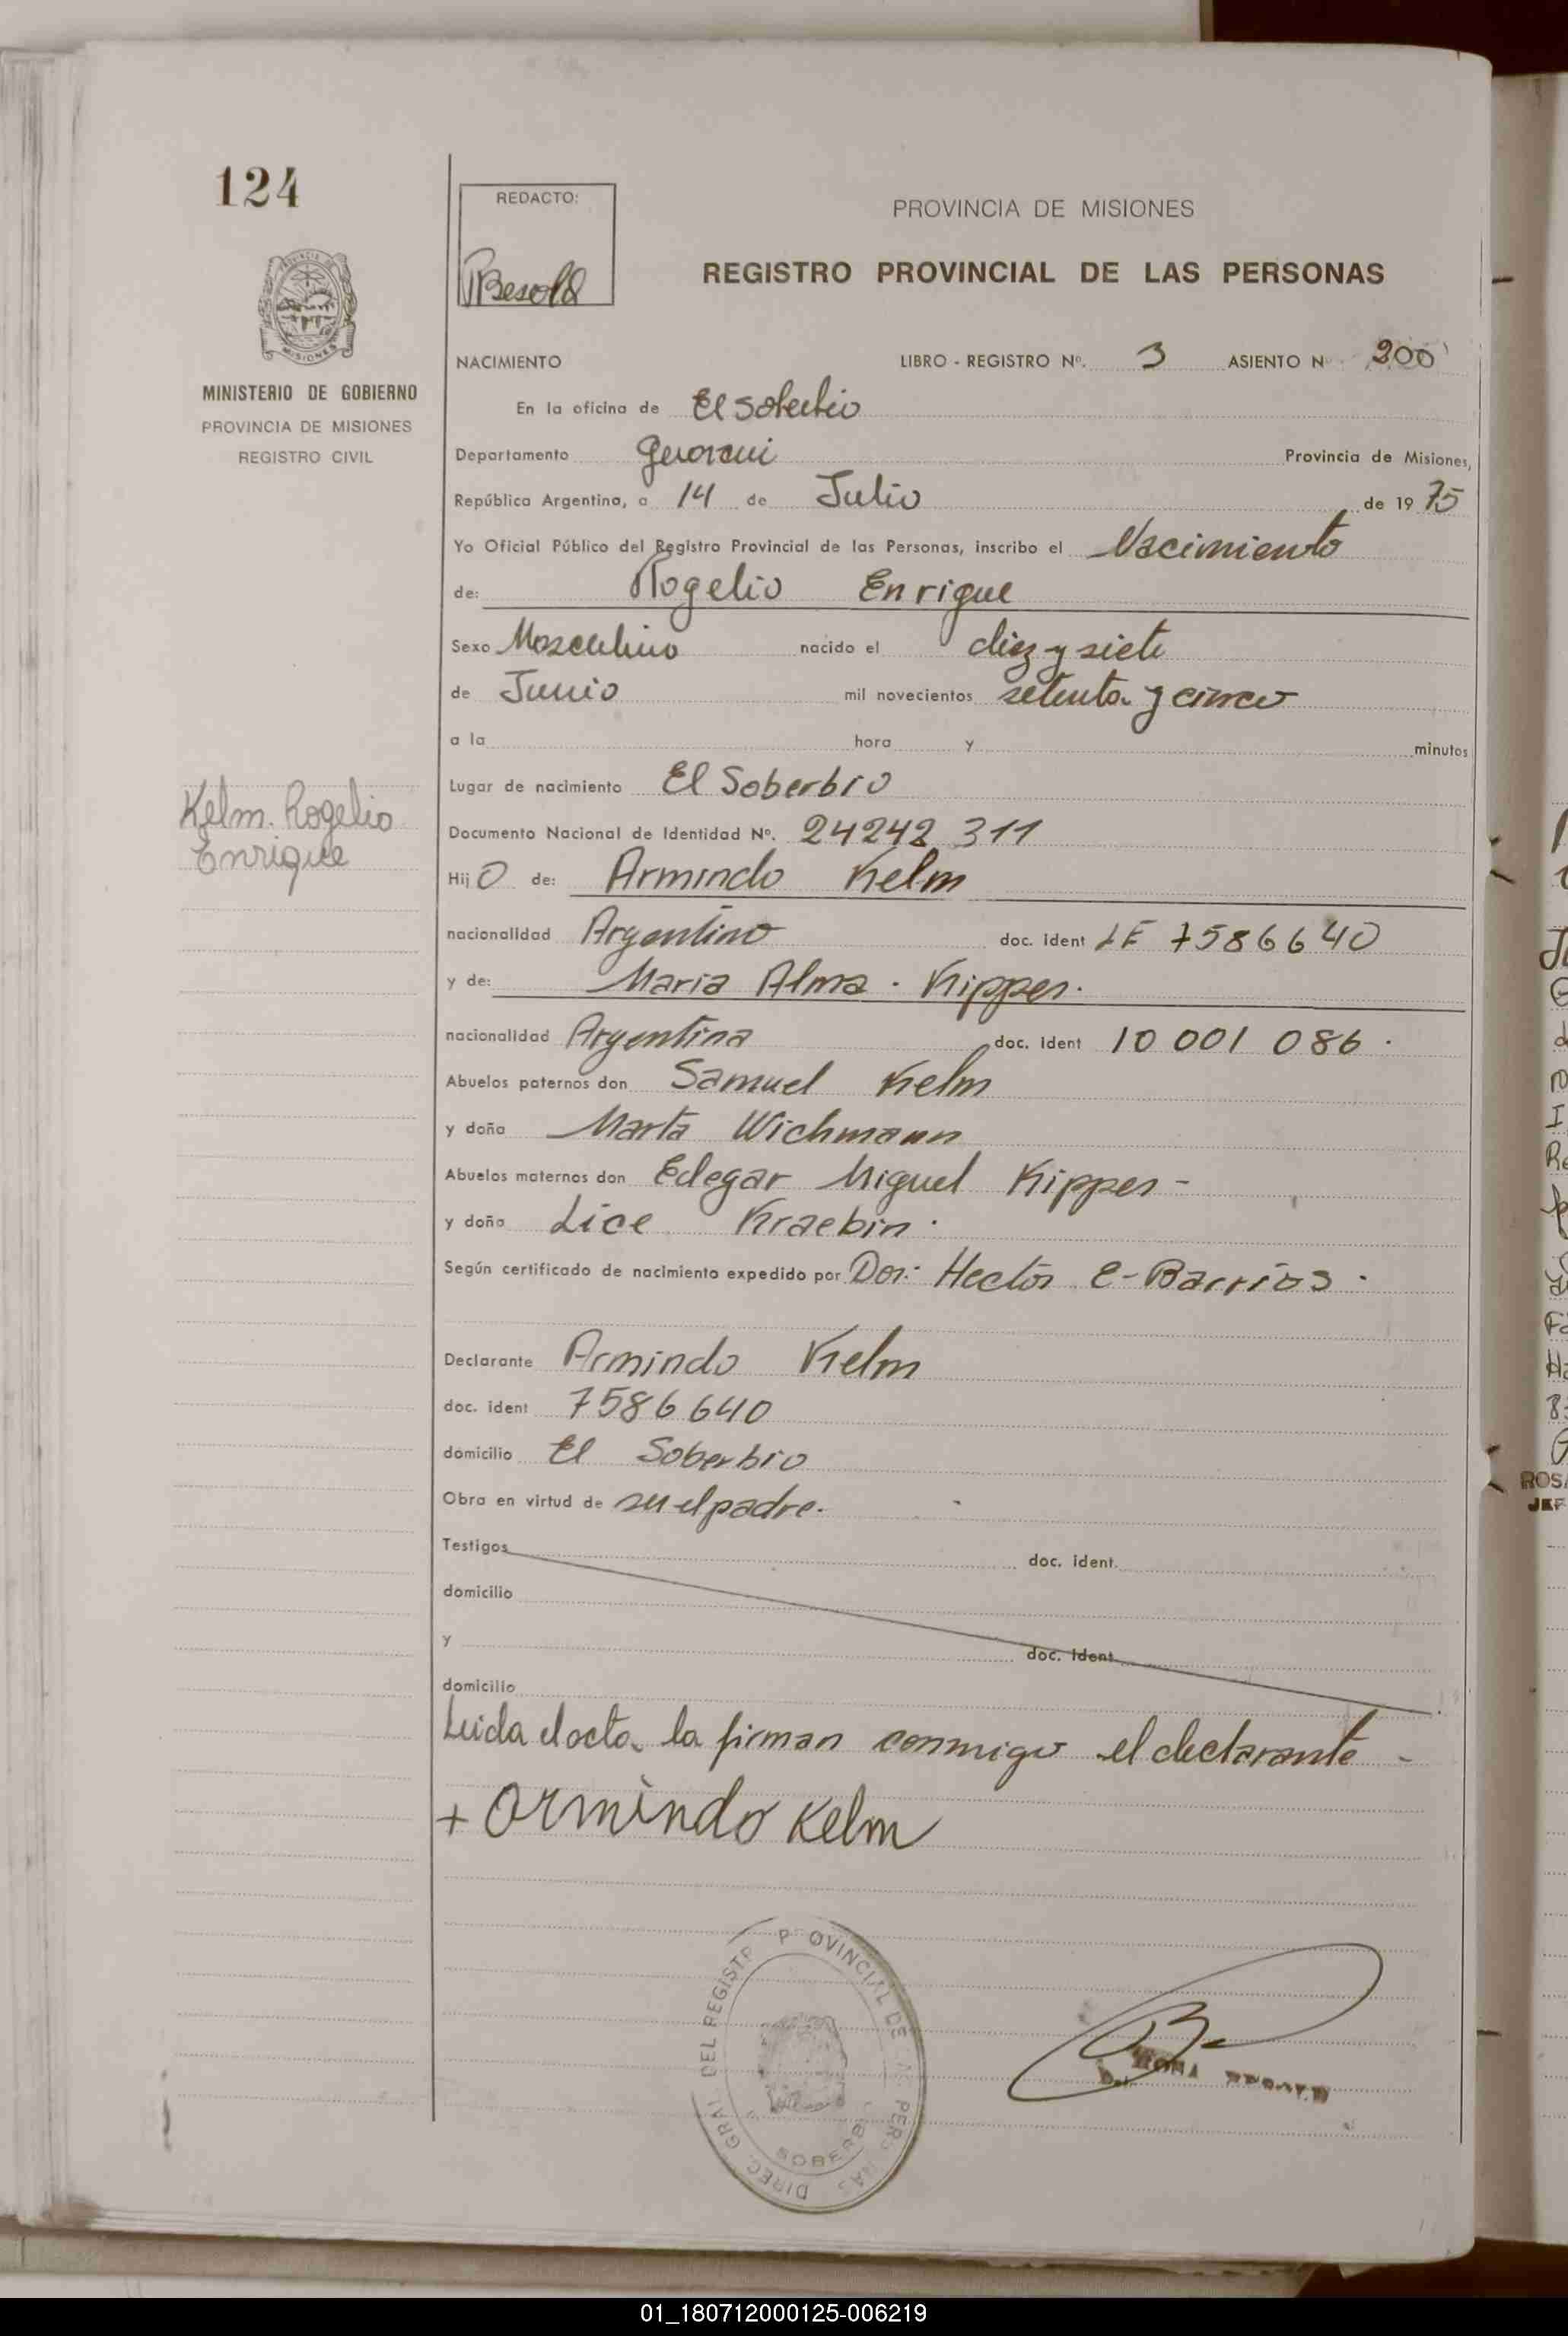 124
REDACTO:
Besold
PROVINCIA DE MISIONES
REGISTRO PROVINCIAL DE LAS PERSONAS
MISIONES
MINISTERIO DE GOBIERNO
PROVINCIA DE MISIONES
REGISTRO CIVIL
NACIMIENTO LIBRO - REGISTRO Nº. 3 ASIENTO Nº 200
En la oficina de El Soberbio
Departamento Guarani Provincia de Misiones,
República Argentina, a 14 de Julio de 19 75
Yo Oficial Público del Registro Provincial de las Personas, inscribo el Nacimiento
de: Rogelio Enrique
Sexo Masculino nacido el diez y siete
de Junio mil novecientos setenta y cinco
a la hora y minutos
Lugar de nacimiento El Soberbio
Kelm. Rogelio
Enrique
Documento Nacional de Identidad Nº. 24242 311
Hij O de: Armindo Kelm
nacionalidad Argentino doc. ident LE 7586640
y de: Maria Alma. Kipper.
nacionalidad Argentina doc. ident 10 001 086.
Abuelos paternos don Samuel Kelm
y doña Marta Wichmann
Abuelos maternos don Edegar Miguel Kipper -
y doña Lice Kraebin.
Según certificado de nacimiento expedido por Dor: Hector E-Barrios.
Declarante Armindo Kelm
doc. ident 7586640
domicilio El Soberbio
Obra en virtud de su el padre.
Testigos doc. ident.
domicilio
y doc. ident
domicilio
Leida el acta la firman conmigo el declarante -
+ Armindo Kelm
DIREC. GRAL DEL REGISTR PROVINCIAL DE PERSONAS
SOBERBIO
ROSA
JEF
01_180712000125-006219